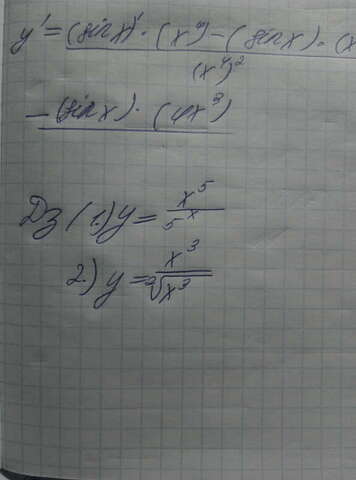 y' = (sin x)' · (x⁴) − (sin x) · (x
(x⁴)²
− (sin x) · (4x³)
Дз (1.) y = x⁵ / 5ˣ
2.) y = x³ /